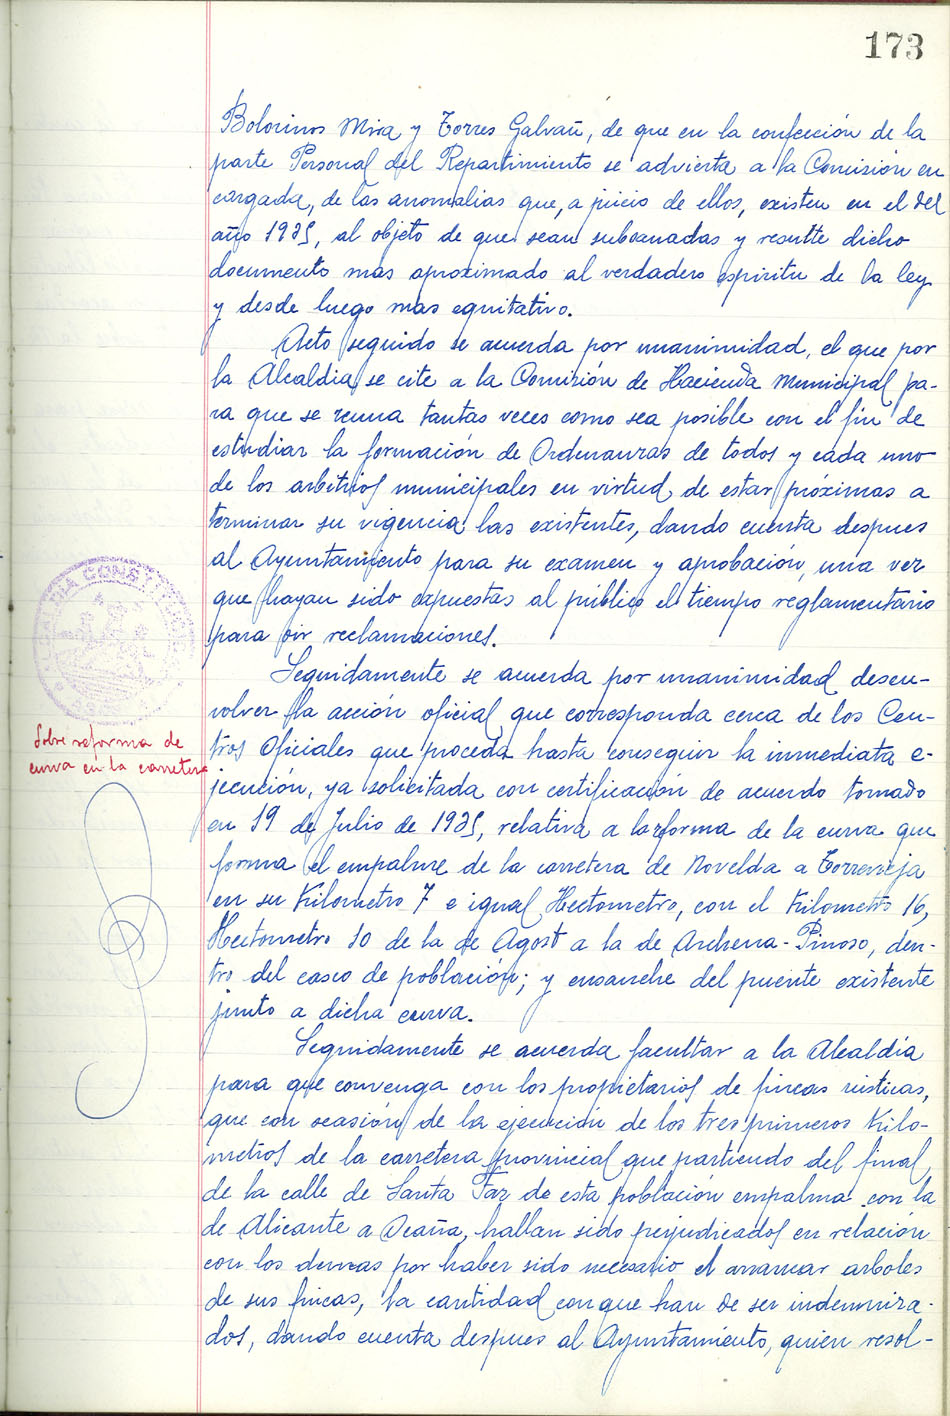 173
Bolorinos Mira y Torres Galvañ, de que en la confección de la
parte Personal del Repartimiento se advierta a la Comisión en
cargada, de las anomalias que, a juicio de ellos, existen en el del
año 1925, al objeto de que sean subsanadas y resulte dicho
documento mas aproximado al verdadero espiritu de la ley
y desde luego mas equitativo.
Acto seguido se acuerda por unanimidad, el que por
la Alcaldia se cite a la Comisión de Hacienda Municipal pa-
ra que se reuna tantas veces como sea posible con el fin de
estudiar la formación de Ordenanzas de todos y cada uno
de los arbitrios municipales en virtud de estar próximas a
terminar su vigencia las existentes, dando cuenta despues
al Ayuntamiento para su examen y aprobación, una vez
que hayan sido expuestas al público el tiempo reglamentario
para oir reclamaciones.
Seguidamente se acuerda por unanimidad desen-
volver la acción oficial que corresponda cerca de los Cen-
tros Oficiales que proceda hasta conseguir la inmediata e-
jecución, ya solicitada con certificación de acuerdo tomado
en 19 de Julio de 1925, relativa a la reforma de la curva que
forma el empalme de la carretera de Novelda a Torrevieja
en su Kilometro 7 e igual Hectometro, con el Kilometro 16,
Hectometro 10 de la de Agost a la de Archena-Pinoso, den-
tro del casco de población; y ensanche del puente existente
junto a dicha curva.
Seguidamente se acuerda facultar a la Alcaldía
para que convenga con los propietarios de fincas rústicas,
que con ocasión de la ejecución de los tres primeros Kilo-
metros de la carretera provincial que partiendo del final
de la calle de Santa Faz de esta población empalma con la
de Alicante a Ocaña, hallan sido perjudicados en relación
con los demas por haber sido necesario el arrancar arboles
de sus fincas, la cantidad con que han de ser indemniza-
dos, dando cuenta despues al Ayuntamiento, quien resol-
Sobre reforma de
curva en la carretera